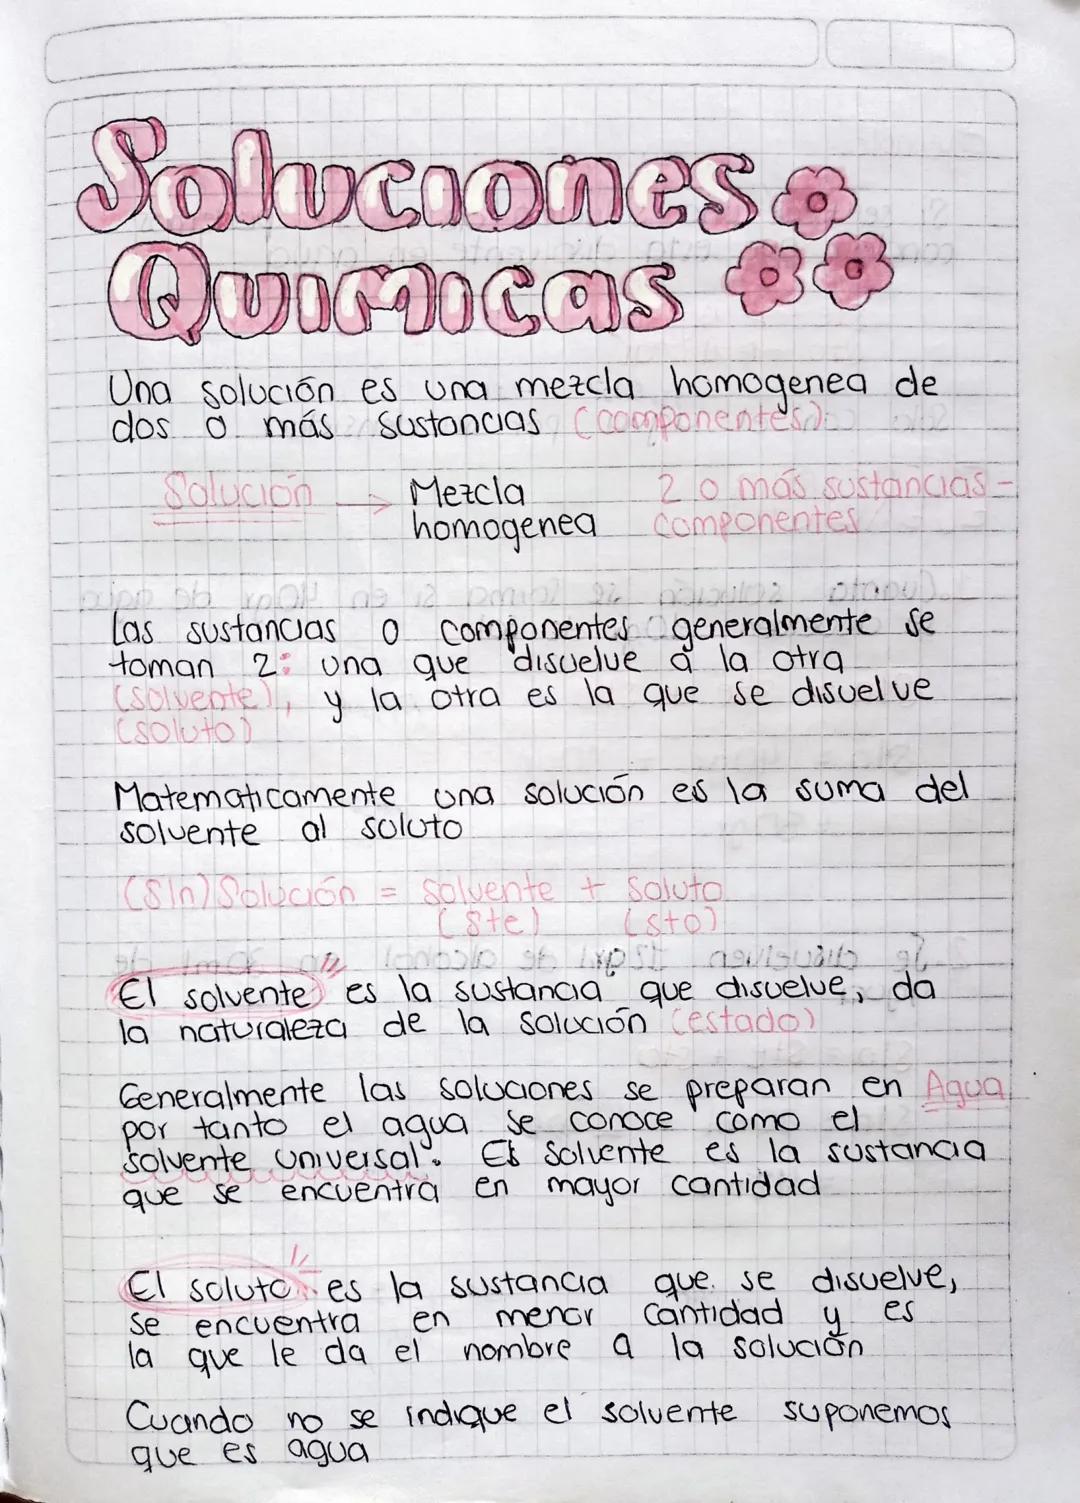 Soluciones
Quimicas
Una solución es una mezcla homogenea de
dos o más sustancias (componentes).
Solución → Mezcla 2 o más sustancias -
homogenea componentes
Las sustancias o componentes generalmente se
toman 2: una que disuelve a la otra
(solvente), y la otra es la que se disuelve
(soluto)
Matematicamente una solución es la suma del
solvente al soluto
(Sln) Solución = Solvente + Soluto
(Ste) (sto)
El solvente es la sustancia que disuelve, da
la naturaleza de la solución (estado)
Generalmente las soluciones se preparan en Agua
por tanto el agua se conoce como el
solvente universal". El solvente es la sustancia
que se encuentra en mayor cantidad
El soluto es la sustancia que se disuelve,
se encuentra en menor cantidad y es
la que le da el nombre a la solución
Cuando no se indique el solvente suponemos
que es agua